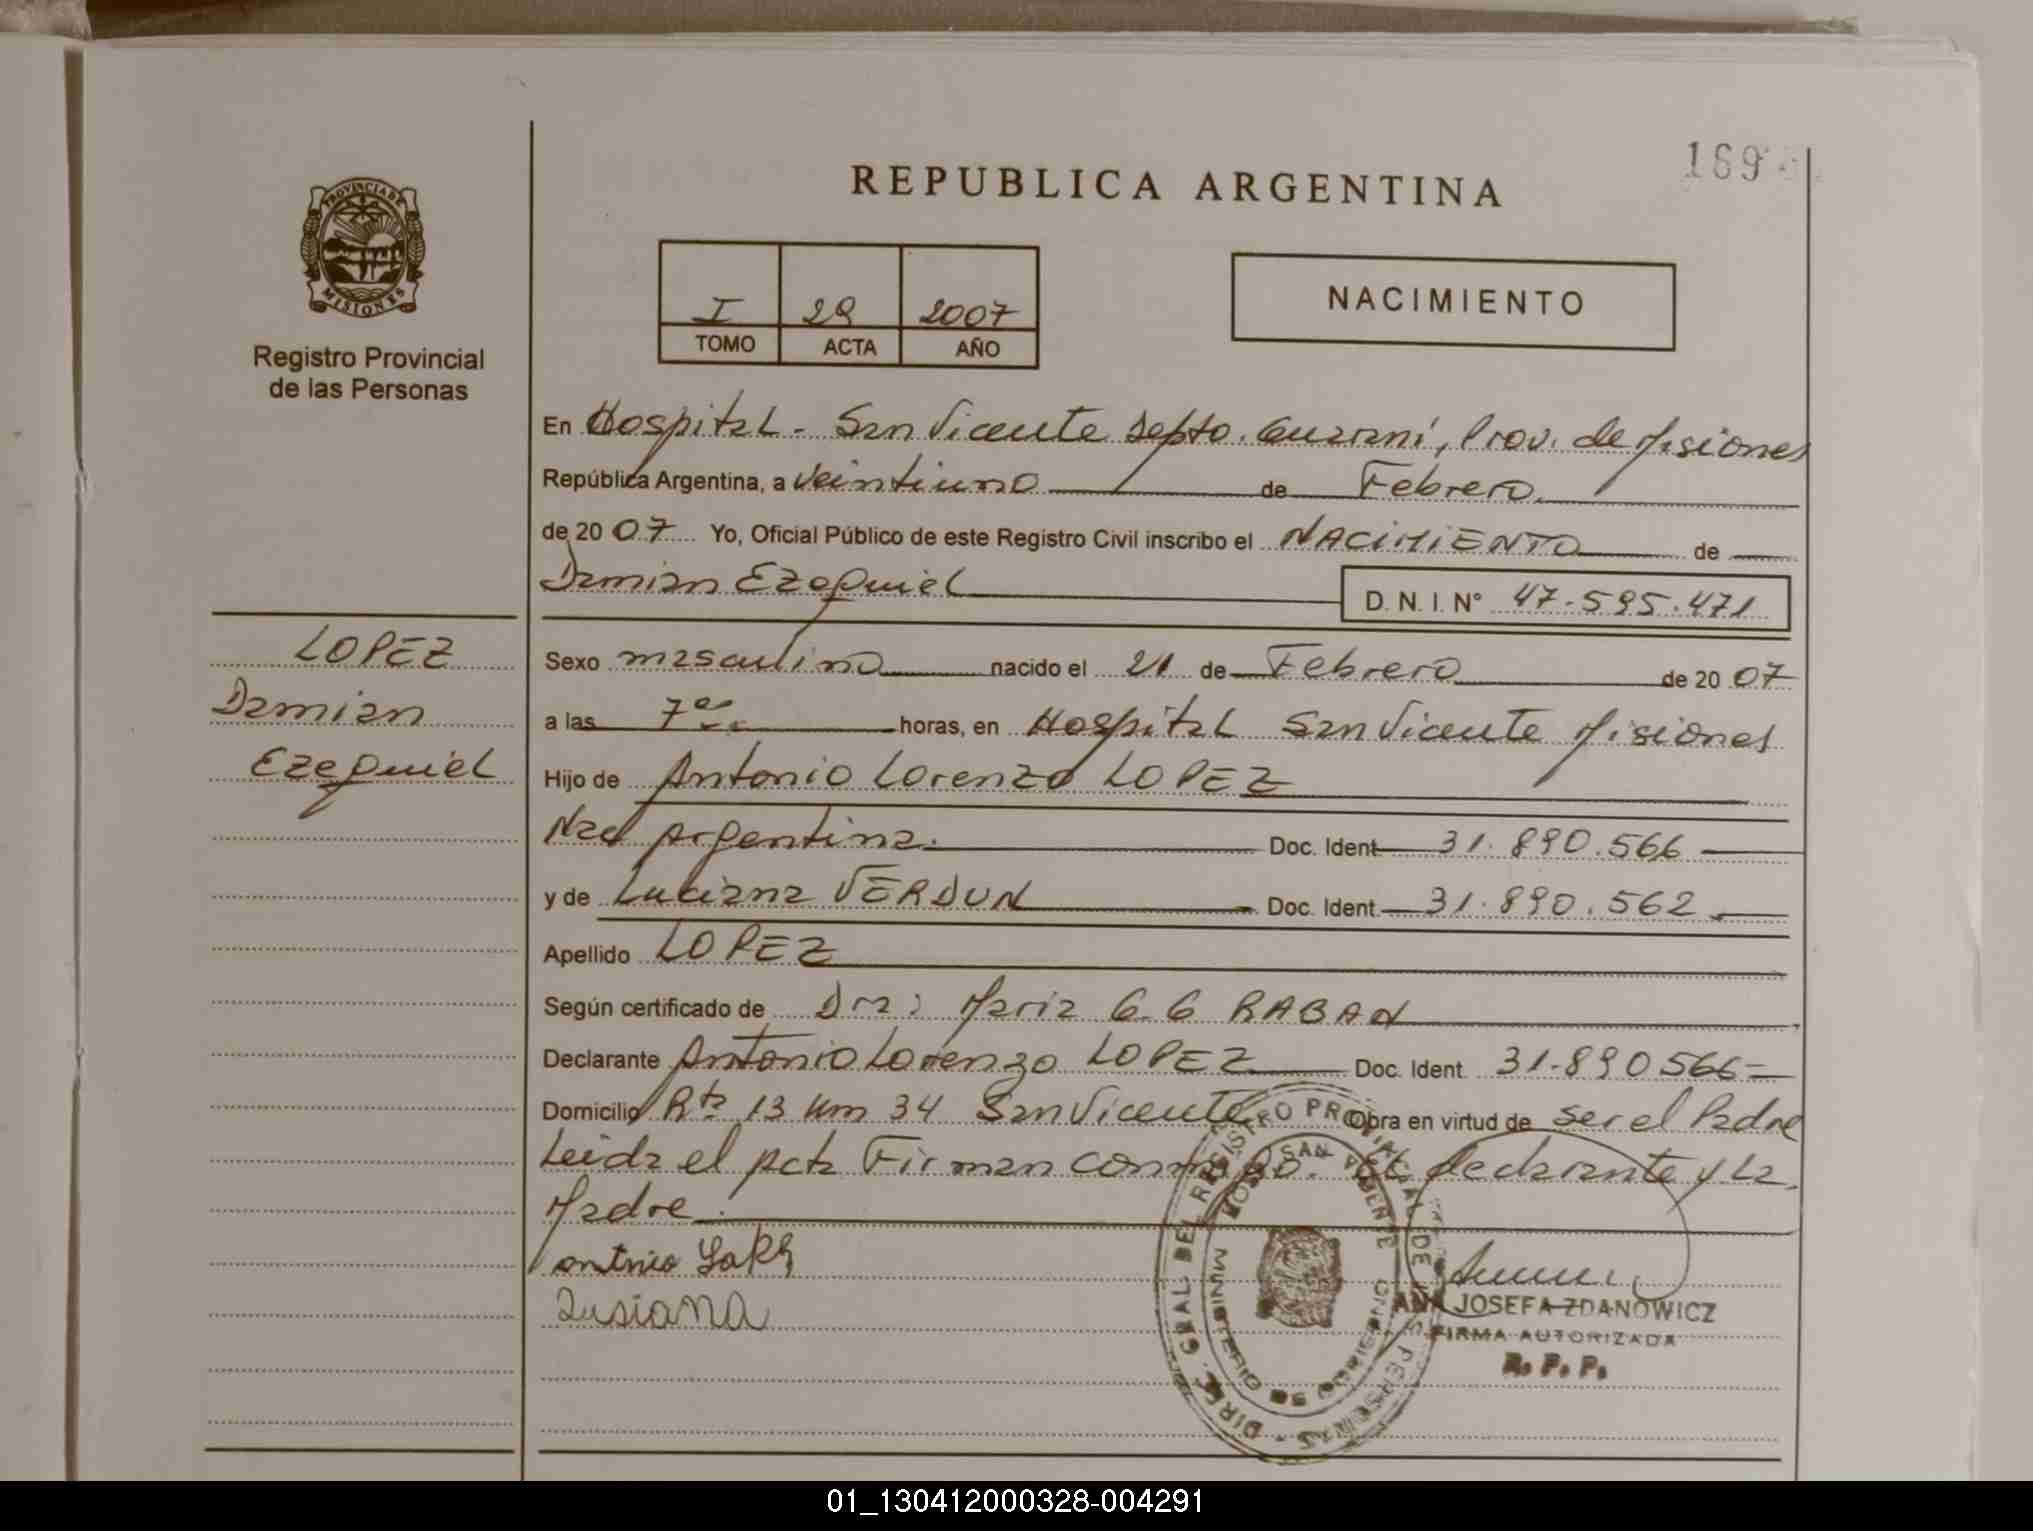 169
REPUBLICA ARGENTINA
PROVINCIA DE
MISIONES
Registro Provincial
de las Personas
I 29 2007
TOMO ACTA AÑO
NACIMIENTO
En Hospital - San Vicente Depto. Guarani, Prov. de Misiones
República Argentina, a Veintiuno de Febrero.
de 2007 Yo, Oficial Público de este Registro Civil inscribo el NACIMIENTO de
Damian Ezequiel D. N. I. N° 47.595.471
LOPEZ
Damian
Ezequiel
Sexo masculino nacido el 21 de Febrero de 2007
a las 7 horas, en Hospital San Vicente Misiones
Hijo de Antonio Lorenzo LOPEZ
Nac Argentina. Doc. Ident 31.890.566
y de Luciana VERDUN Doc. Ident. 31.890.562.
Apellido LOPEZ
Según certificado de Dra: Maria G. G RABAN
Declarante Antonio Lorenzo LOPEZ Doc. Ident. 31.890566
Domicilio Rta 13 Km 34 San Vicente Obra en virtud de ser el Padre
Leida el acta Firman conmigo. el declarante y La
Madre.
Lusiana
DIREC. GRAL DEL REGISTRO PROVINCIAL DE LAS PERSONAS
MINISTERIO DE GOBIERNO
HOSP. SAN VICENTE
ANA JOSEFA ZDANOWICZ
FIRMA AUTORIZADA
R. P. P.
01_130412000328-004291